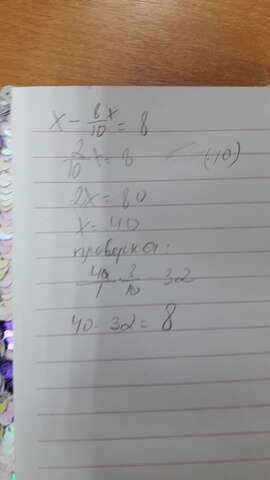 x - 8/10 x = 8
2/10 x = 8 (·10)
2x = 80
x = 40
проверка.
40/1 · 8/10 32
40 - 32 = 8